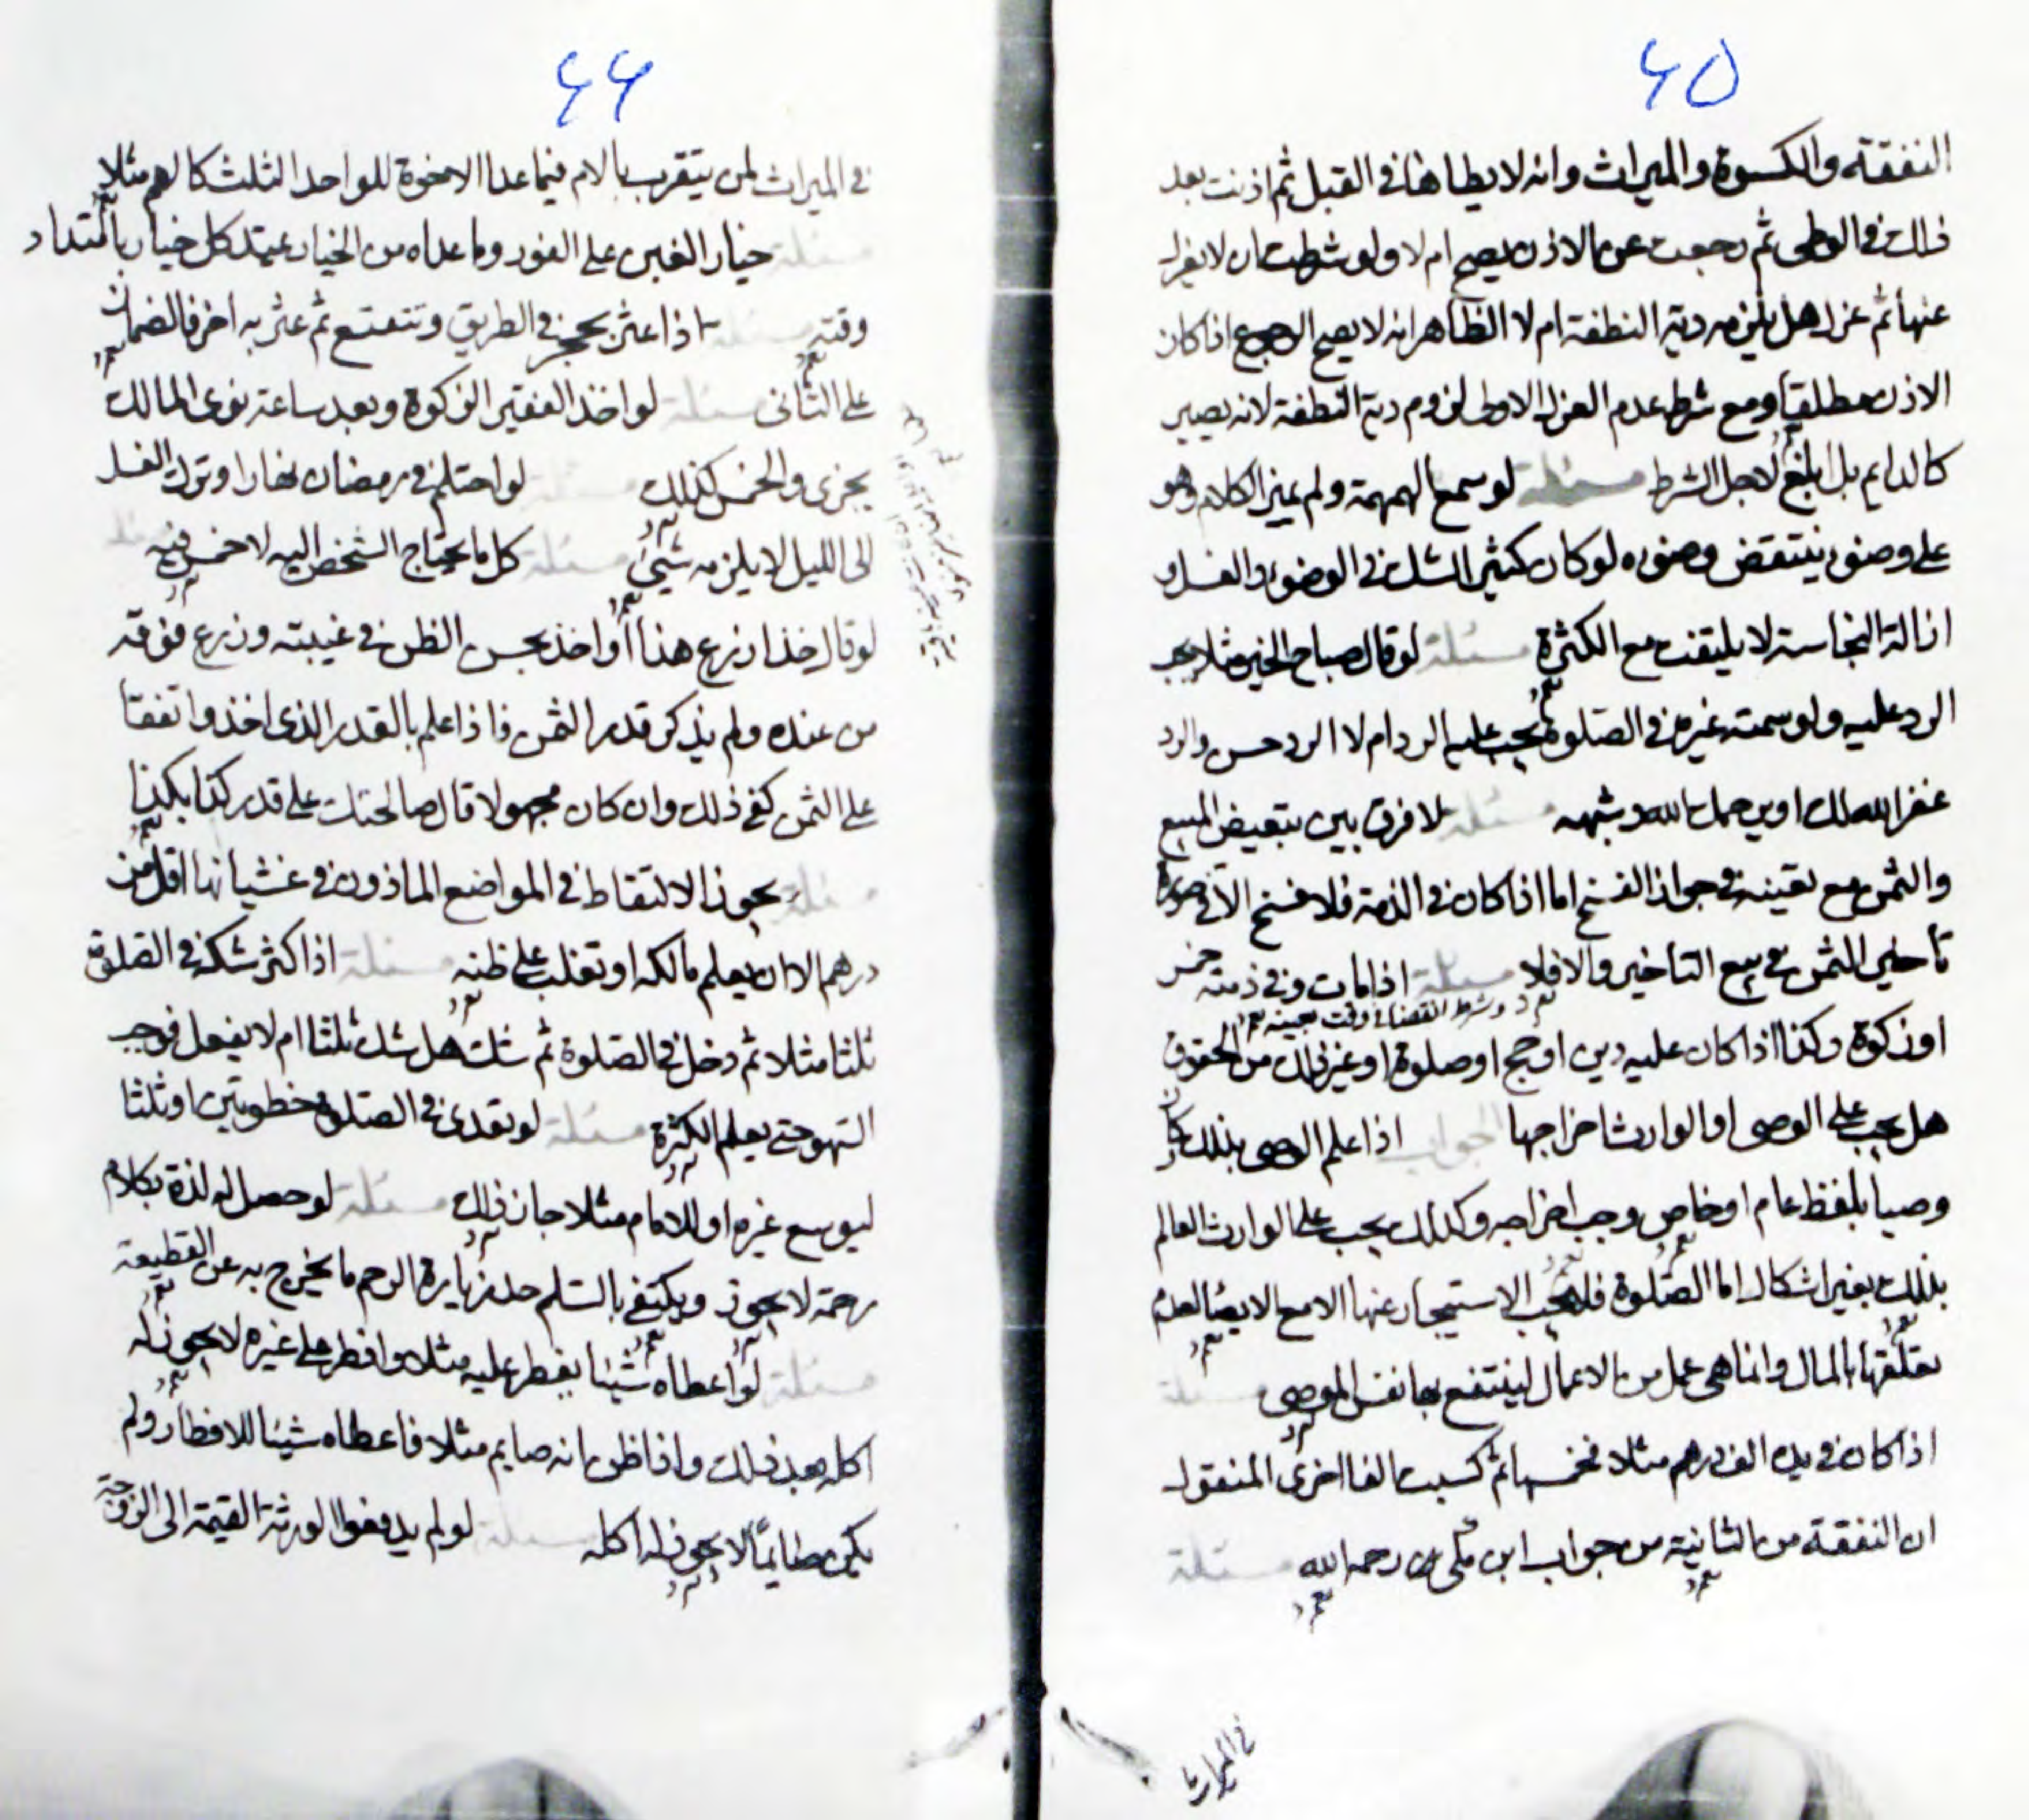 ٤٥
النفقة والكسوة والميراث وانه لا يطاها في القبل ثم اذنت بعد
ذلك في الوطى ثم رجعت عن الاذن يصح ام لا ولو شرطت ان لا يعزل
عنها ثم عزل هل يلزمه دية النطفة ام لا الظاهر انه لا يصح الرجوع اذا كان
الاذن مطلقا ومع شرط عدم العزل الاولى لزوم دية النطفة لانه يصير
كالدايم بل ابلغ لاجل الشرط مسئلة لو سمع الهمهمة ولم يميز الكلام وهو
على وضوء ينتقض وضوءه لو كان كثير الشك في الوضوء والغسل و
ازالة النجاسة لا يلتفت مع الكثرة مسئلة لو قال صباح الخير مثلا يجب
الرد عليه ولو سمته غيره في الصلوة يجب عليه الرد ام لا الرد حسن والرد
غفر الله لك او يرحمك الله وشبهه مسئلة لا فرق بين تبعيض المبيع
والثمن مع تعيينه في جواز الفسخ اما اذا كان في الذمة فلا فسخ الا في صورة
تأخير الثمن في بيع التاخير والا فلا مسئلة اذا مات وفي ذمته خمس
وشرط القضا في وقت بعينه
او زكوة وكذا اذا كان عليه دين او حج او صلوة او غير ذلك من الحقوق
هل يجب على الوصى او الوارث اخراجها الجواب اذا علم الوصى بذلك وكان
وصيا بلفظ عام او خاص وجب اخراجه وكذلك يجب على الوارث العالم
بذلك بغير اشكال اما الصلوة فلا يجب الاستيجار عنها الا مع الايصا لعدم
تعلقها بالمال وانما هي عمل من الاعمال لينتفع بها نفس الموصى مسئلة
اذا كان في يده الف درهم مثلا فخمسها ثم كسبت الفا اخرى المنقول
ان النفقة من الثانية من جواب ابن مكى رحمه الله مسئلة
في الميراث
٤٤
في الميراث لمن يتقرب بالام فيما عدا الاخوة للواحد الثلث كالهم مثلا
مسئلة خيار الغبن على الفور وما عداه من الخيار عيتد كل خيار بامتداد
وقته مسئلة اذا عثر بحجر في الطريق وتتعتع ثم عثر به اخر فالضمان
على الثانى مسئلة لو اخذ الفقير الزكوة وبعد ساعة نوى المالك
يجزى والخمس كذلك مسئلة لو احتلم في رمضان نهارا وترك الغسل
الى الليل لا يلزمه شيئ مسئلة كل ما يحتاج الشخص اليه لا خمس فيه مسئلة
لو قال خذ ازرع هذا او اخذ بحسن الظن في غيبته وزرع فوقه
من عنده ولم يذكر قدر الثمن فاذا علم بالقدر الذى اخذ واتفقا
على الثمن كفى ذلك وان كان مجهولا قال صالحتك على قدر كذا بكذا
مسئلة يجوز الالتقاط في المواضع الماذون في غشيانها اقل من
درهم الا ان يعلم مالكه او تغلب على ظنه مسئلة اذا كثر شكه في الصلوة
ثلثا مثلا ثم دخل في الصلوة ثم شك هل شك ثلثا ام لا يفعل موجب
السهو حتى يعلم الكثرة مسئلة لو تعدى في الصلوة خطوتين او ثلثا
ليوسع غيره او للامام مثلا جاز ذلك مسئلة لو حصل له لذة بكلام
رحمة لا يجوز ويكتفى بالسلم حد زيارة الرحم ما يخرج به عن القطيعة
مسئلة لو اعطاه شيئا يفطر عليه مثلا وافطر على غيره لا يجوز له
اكله بعد ذلك واذا ظن انه صايم مثلا فاعطاه شيئا للافطار ولم
يكن صايما لا يجوز له اكله مسئلة لو لم يدفعوا الورثة القيمة الى الزوجة